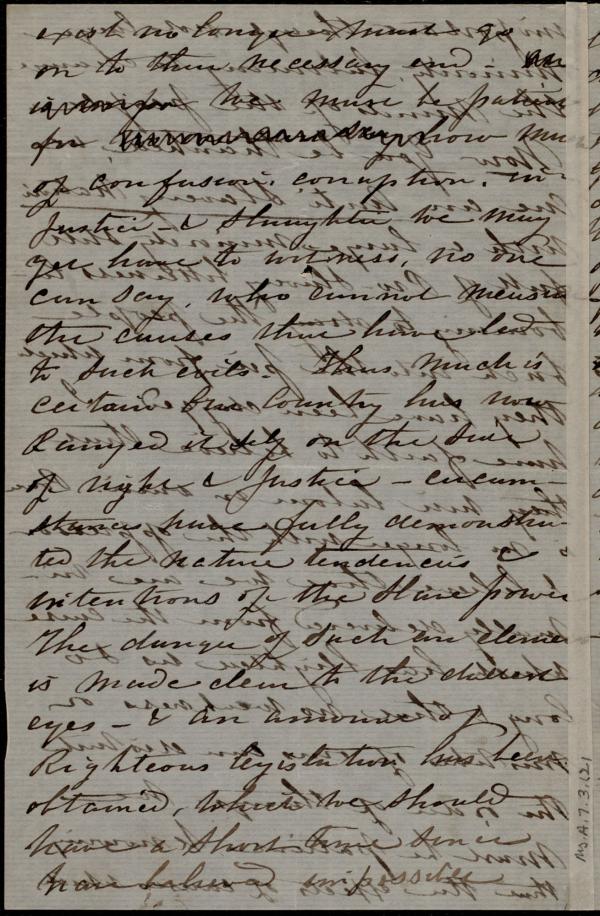 exist no longer must go
on to their necessary end -
we must be patient
for how mu
of confusion. coruption. in-
justice - & slaughter we may
yet have to witness, no one
can say, who cannot measure
the causes that have lead
to such evils - Thus much is
certain our Country has now
Ranged itself on the side
of right & Justice - circum-
stances have fully demonstra-
ted the nature tendencies &
intentions of the Slave power
The danger of such an eleme
is made clear to the dullest
eyes - & an amount of
Righteous legislation has been
obtained, which we should
have a short time since
have believed impossible
Ms.A.7.3.121